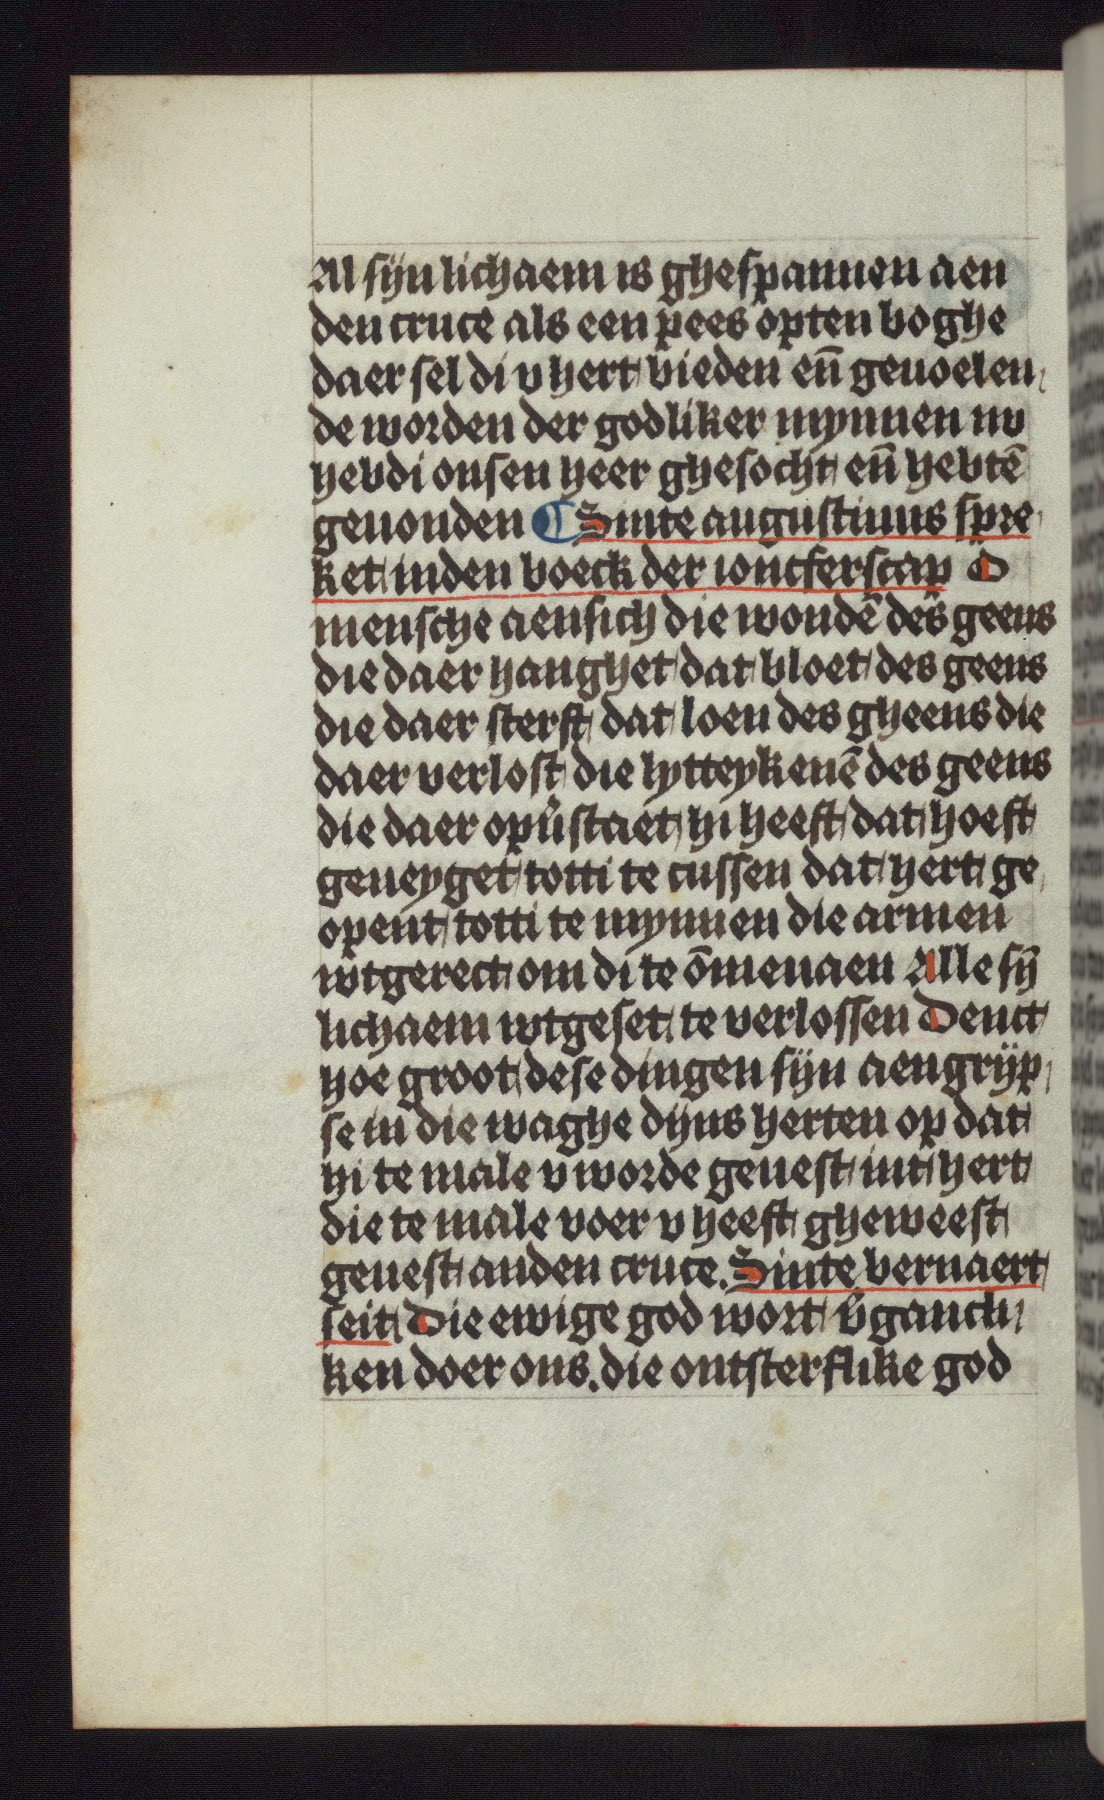 Al sijn lichaem is ghespannen aen
den cruce als een pees opten boghe
daer sel di v hert bieden eñ geuoelen
de worden der godliker mynnen nv
hebdi onsen heer ghesocht eñ hebtē
geuonden ¶ Sinte augustinus spre
ket inden boeck der ioncferscap O
mensche aensich die wondē des geens
die daer hanghet dat bloet des geens
die daer sterft dat loen des gheens die
daer verlost die lytteykenē des geens
die daer opv̄staet hi heeft dat hoeft
geneyget totti te cussen dat hert ge
opent totti te mynnen die armen
wtgerect om di te ōmenaen Alle sȳ
lichaem wtgeset te verlossen Denct
hoe groot dese dingen sijn aengrijp
se in die waghe dijns herten op dat
hi te male v worde geuest int hert
die te male voer v heeft gheweest
geuest anden cruce. Sinte bernaert
seit Die ewige god wort v̄gancli
ken doer ons. die ontsterflike god